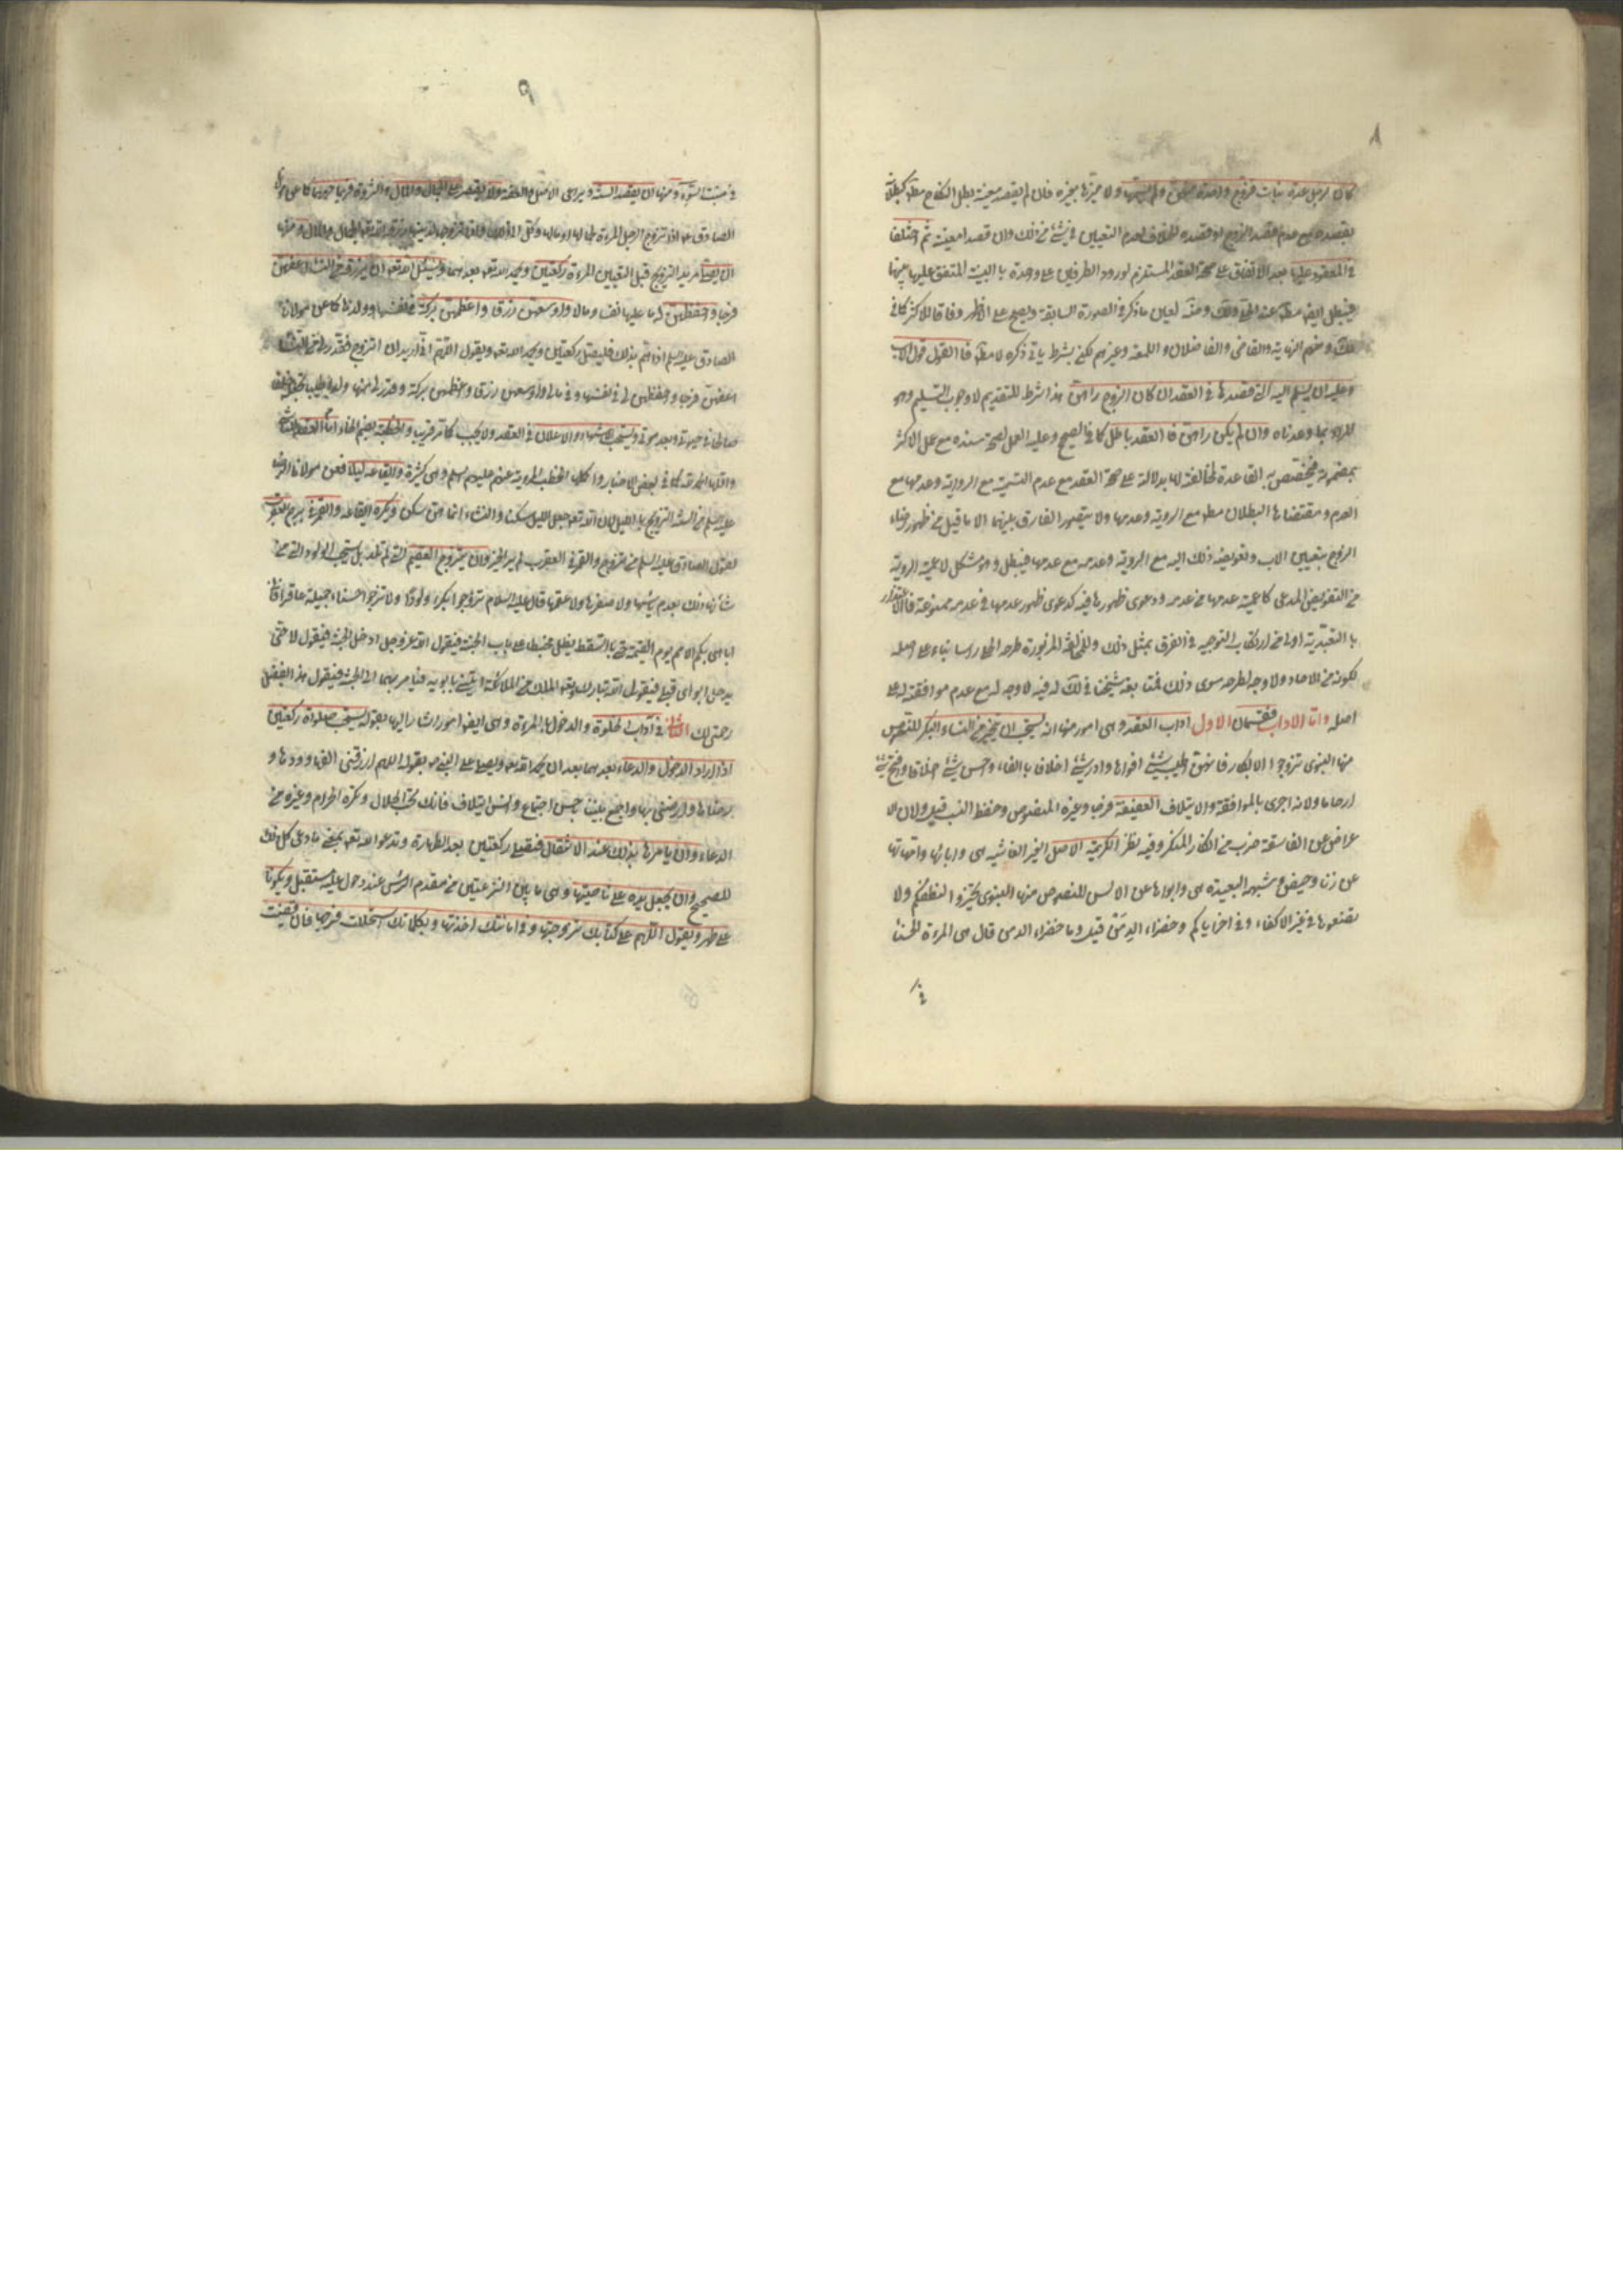 ٨
كان لرجل عدة بنات فزوج واحدة منهن ولم يسمها ولا ميزها بغيره فان لم يقصد معينة بطل النكاح مط
بقصده مع عدم قصد الزوج او قصده للخلاف لعدم التعيين في شئ من ذلك وان قصدا معينة ثم اختلفا
في المعقود عليها بعد الاتفاق على صحة العقد المستلزم لورود الطرفين على واحدة بالنية المتفق عليها بينهما
فيبطل ايض مط عند الحلي ولك ومنه لعين ما ذكر في الصورة السابقة ويصح على الاظهر وفاقا للاكثر كما في
لك ومنهم النهاية والقاضي والفاضلان واللمعة وغيرهم لكن بشرط ياتي ذكره لا مط فالقول قول الاب
وعليه ان يسلم اليه التي قصدها في العقد ان كان الزوج راهن هذا شرط للتقديم لا وجوب التسليم وهو
المراد بما وعدناه وان لم يكن راهن فالعقد باطل كما في الصحيح وعليه العمل لصحة سنده مع عمل الاكثر
بمضمونه فيختص به القاعدة لمخالفته لها بدلالته على صحة العقد مع عدم التسمية مع الروية وعدمها مع
العدم ومقتضاها البطلان مط مع الروية وعدمها ولا يتصور الفارق بينهما الا ما قيل من ظهور رضاء
الزوج بتعيين الاب وتفويضه ذلك اليه مع الروية وعدمه مع عدمها فيبطل وهو مشكل لاعمية الروية
من التفويض المدعى كاعمية عدمها من عدمه ودعوى ظهورها فيه كدعوى ظهور عدمها في عدمه ممنوعة فالاعتذار
بالتعبدية اولى من ارتكاب التوجيه في الفرق بمثل ذلك وللمخالفة المزبورة طرحه الحلي راسا بناء على اصله
لكونه من الاحاد ولا وجه لطرحه سوى ذلك فمتابعة شيخنا في لك له فيه لا وجه له مع عدم موافقته له على
اصله واما الاداب فقسمان الاول اداب العقد وهي امور منها انه يستحب ان يتخير من النساء البكر للنصوص
منها النبوي تزوجوا الابكار فانهن اطيب شئ افواها وادر شئ اخلافا بالفاء واحسن شئ اخلاقا وافتح شئ
ارحاما ولانه احرى بالموافقة والايتلاف العفيفة فرجا وغيره للنصوص وحفظ النسب قيل ولان الا
عراض عن الفاسقة ضرب من انكار المنكر وفيه نظر الكريمة الاصل الخير الفاشيه هي وابائها وامهاتها
عن زنا وحيض وشبهه البعيدة هي وابواها عن الالسن للنصوص منها النبوي تخيروا لنطفكم ولا
تضعوها في غير الاكفاء وفي اخر اياكم وخضراء الدمن قيل وما خضراء الدمن قال هي المراة الحسناء
في
٩
في منبت السوء ومنها ان يقصد السنة ويراعي الاصل والعفة ولا يقتصر على الجمال والمال والثروة فربما حرمهما كما عن مولانا
الصادق ع اذا تزوج الرجل المراة لجمالها او مالها وكل الى ذلك واذا تزوجها لدينها رزقه الله تعه الجمال والمال ومنها
ان يصلي مريد التزويج قبل التعيين المراة ركعتين ويحمد الله تعه بعدهما ويسئل الله تعه ان يرزقه من النساء اعفهن
فرجا واحفظهن له ما عليها نفسا ومالا واوسعهن رزقا واعظمهن بركة في نفسها وولدها كما عن مولانا
الصادق عليه السلم اذا هم بذلك فليصل ركعتين ويحمد الله تعه ويقول اللهم اني اريد ان اتزوج فقدر لي من النساء
اعفهن فرجا واحفظهن لي في نفسها وفي مالي واوسعهن رزقا واعظمهن بركة وقدر لي منها ولدا طيبا تجعله خلفا
صالحا في حيوتي وبعد موتي ويستحب الاشهاد والاعلان في العقد ولا يجب كما مر قريب والخطبة بضم الخاء امام العقد للتاسي
واقلها الحمد لله كما في بعض الاخبار واكملها الخطب المروية عنهم عليهم السلم وهي كثيرة وايقاعه ليلا فعن مولانا الرضا
عليه السلم من السنة التزويج بالليل لان الله تعه جعل الليل سكنا والنساء انما هن سكن ويكره ايقاعه والقمر في برج العقرب
لقول الصادق عليه السلم من تزوج والقمر في العقرب لم ير الخير وان يتزوج العقيم التي لم تلد بل يستحب الولود التي من
شانها ذلك بعدم ياسها ولا صغرها ولا عقمها قال عليه السلام تزوجوا بكرا ولودا ولا تزوجوا حسناء جميلة عاقرا فاني
اباهي بكم الامم يوم القيمة حتى بالسقط يظل محبنطئا على باب الجنة فيقول الله عز وجل ادخل الجنة فيقول لا حتى
يدخل ابواي قبلي فيقول الله تبارك وتعه لملك من الملائكة ايتني بابويه فيامر بهما الى الجنة فيقول هذا بفضل
رحمتي لك الثاني في آداب الخلوة والدخول بالمراة وهي ايض امور اشار اليها بقوله يستحب صلوة ركعتين
اذا اراد الدخول والدعاء بعدهما بعد ان يحمد الله تعه ويصلي على النبي ص بقوله اللهم ارزقني الفها وودها و
رضاها وارضني بها واجمع بيننا باحسن اجتماع وانس ايتلاف فانك تحب الحلال وتكره الحرام وغيره من
الدعاء وان يامرها بذلك عند الانتقال فتصلي ركعتين بعد الطهارة وتدعو الله تعه بمعنى ما دعى كل ذلك
للصحيح وان يجعل يده على ناصيتها وهي ما بين النزعتين من مقدم الراس عند دخولها عليه مستقبل ويكونا
على طهر ويقول اللهم على كتابك تزوجتها وفي امانتك اخذتها وبكلماتك استحللت فرجها فان قضيت